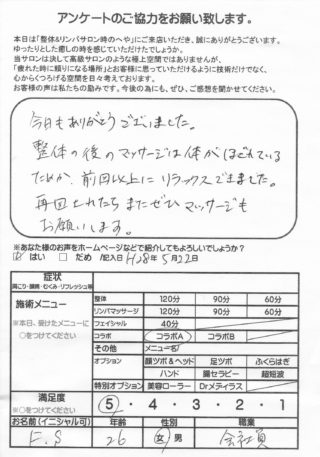 アンケートのご協力をお願い致します。
本日は「整体&リンパサロン時のへや」にご来店いただき、誠にありがとうございます。
ゆったりとした癒しの時を感じていただけたでしょうか。
当サロンは決して高級サロンのような極上空間ではありませんが、
「疲れた時に頼りになる場所」とお客様に思っていただけるように技術だけでなく、
心からくつろげる空間を日々考えております。
お客様の声は私たちの励みです。今後の為にも、ぜひ、ご感想を聞かせてください。
今日もありがとうございました。
整体の後のマッサージは体がほぐれている
ためか、前回以上にリラックスできました。
再回
またぜひマッサージも
お願いします。
※あなた様のお声をホームページなどで紹介してもよろしいでしょうか?
はい □ だめ /記入日 H28年 5月22日
症状
肩こり・腰痛・むくみ・リフレッシュ等
施術メニュー
※本日、受けたメニューに
○をつけてください
整体 120分 90分 60分
リンパマッサージ 120分 90分 60分
フェイシャル 40分
コラボ コラボA コラボB
その他 メニュー名
オプション 顔ツボ&ヘッド 足ツボ ふくらはぎ
ハンド 腸セラピー 超短波
特別オプション 美容ローラー Drメディラス
満足度
※○をつけてください
5・4・3・2・1
お名前(イニシャル可) 年齢 性別 職業
F.S 26 女・男 会社員